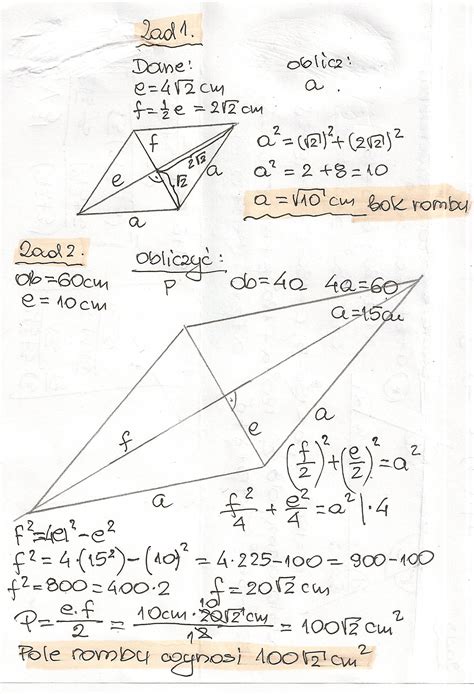 Zad 1.
Dane:
e = 4√2 cm
f = ½ e = 2√2 cm
oblicz:
a.
f
2√2
e
√2
a
a
a² = (√2)² + (2√2)²
a² = 2 + 8 = 10
a = √10 cm bok rombu
Zad 2.
ob = 60cm
e = 10cm
Obliczyć:
P
ob = 4a 4a = 60
a = 15cm
f
e
a
a
(f/2)² + (e/2)² = a²
f²/4 + e²/4 = a² | · 4
f² = 4a² - e²
f² = 4 · (15²) - (10)² = 4 · 225 - 100 = 900 - 100
f² = 800 = 400 · 2 f = 20√2 cm
P = e·f/2 = 10cm · 20√2 cm/2 = 100√2 cm²
10
1
Pole rombu wynosi 100√2 cm²